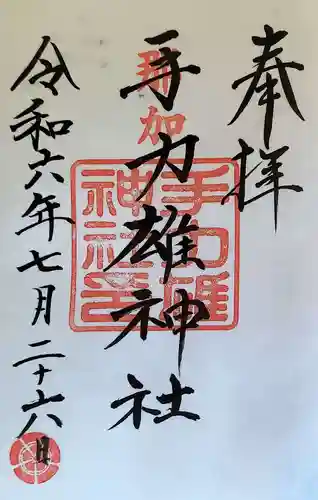 奉拝
那加
手力雄神社
手力雄
神社印
令和六年七月二十六日